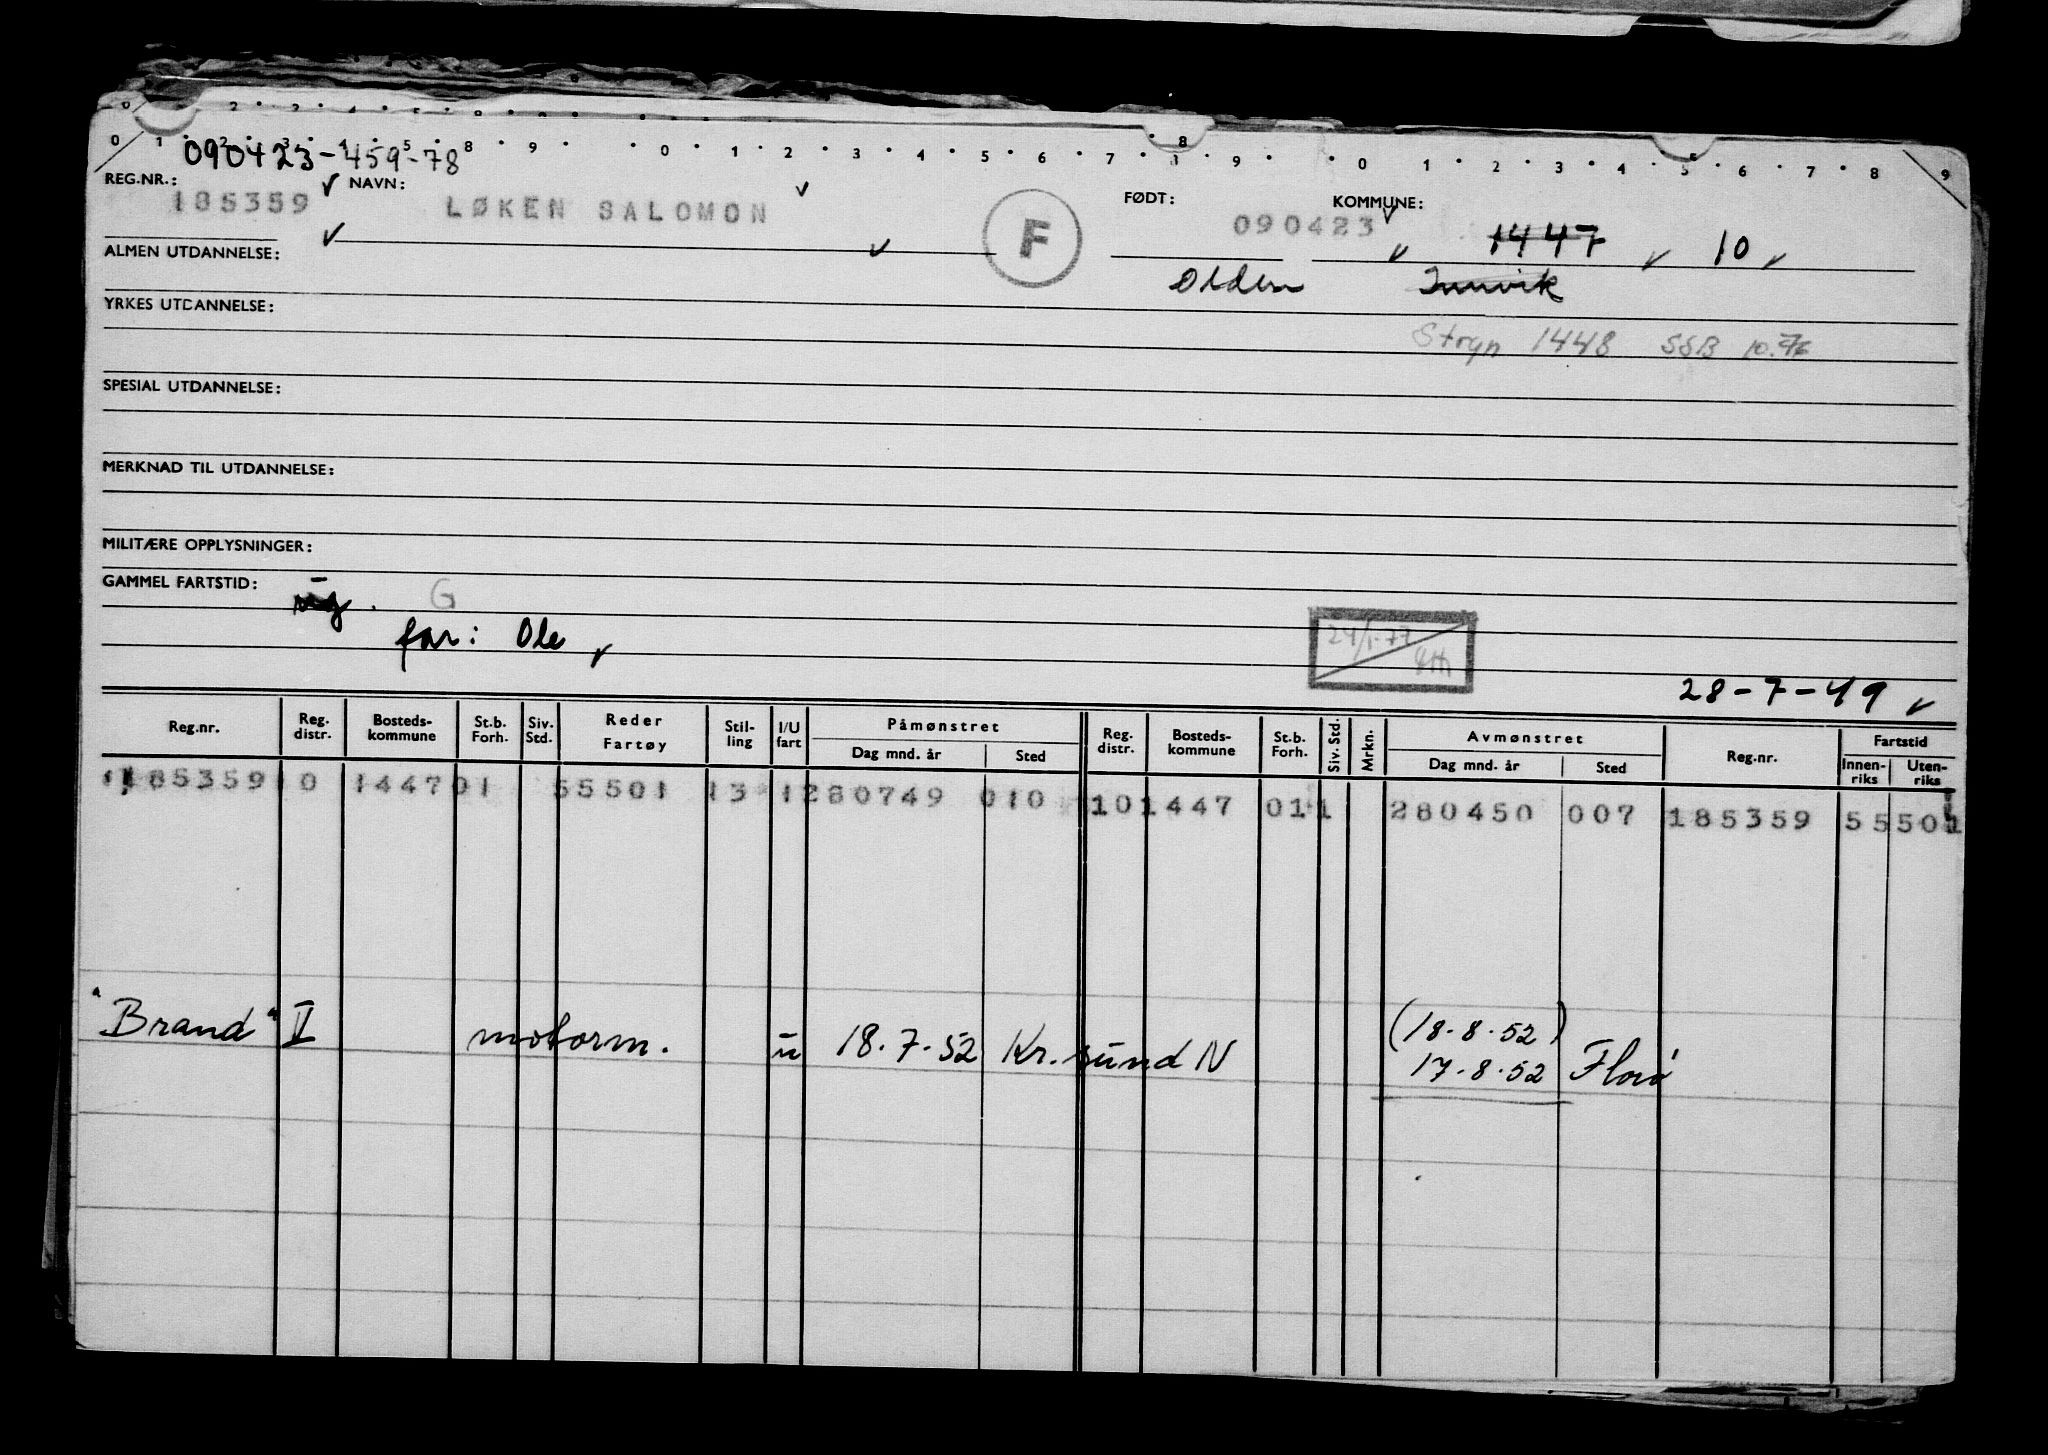 0 1 2 3 4 5 8 9 0 1 2 3 4 5 6 7 8 9 0 1 2 3 4 5 6 7 8 9
090423-459-78
REG.NR.: NAVN: FØDT: KOMMUNE:
185359 LØKEN SALOMON F 090423 1447 10
ALMEN UTDANNELSE:
Olden Innvik
YRKES UTDANNELSE:
Stryn 1448 SSB 10.76
SPESIAL UTDANNELSE:
MERKNAD TIL UTDANNELSE:
MILITÆRE OPPLYSNINGER:
GAMMEL FARTSTID: G
far: Ole
24/1-77
28-7-49
Reg.nr. Reg. distr. Bosteds-kommune St.b. Forh. Siv. Std. Reder Fartøy Stil-ling I/U fart Påmønstret Reg. distr. Bosteds-kommune St.b. Forh. Siv. Std. Mrkn. Avmønstret Reg.nr. Fartstid
Dag mnd. år Sted Dag mnd. år Sted Innen-riks Uten-riks
185359 10 1447 01 55501 13 1 280749 010 10 1447 01 1 280450 007 185359 55501
"Brand" V motorm. u 18.7.52 Kr.sund N (18.8.52)
17.8.52 Florø